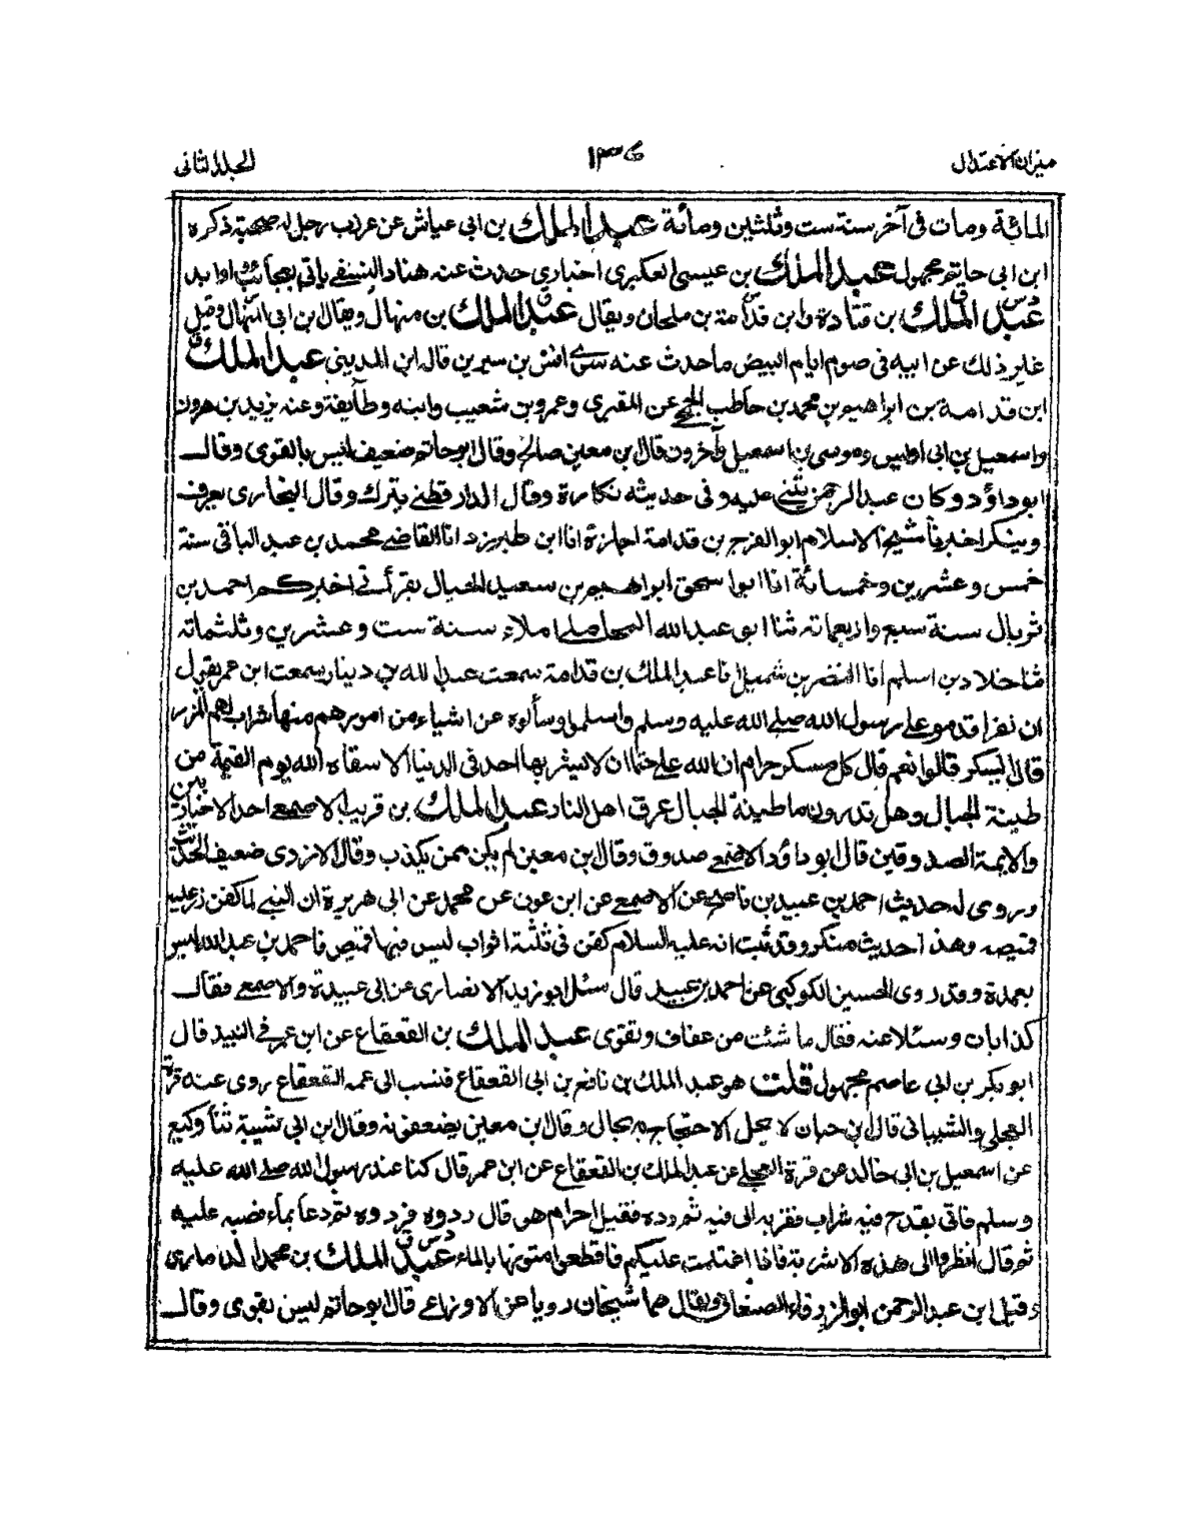 ميزان الاعتدال
١٣٦
الجلد الثانى
المائة ومات فى آخر سنة ست وثلثين ومائة عبد الملك بن ابى عياش عن عريب رجل له صحبة ذكره
ابن ابى حاتم مجهول عبد الملك بن عيسى العكبرى اخبارى حدث عنه هناد النسفے ياتى بعجائب واوابد
عبد الملك بن قتادة وابن قدامة بن ملحان ويقال عبد الملك بن منهال ويقال ابن ابى المنهال وقيل
غير ذلك عن ابيه فى صوم ايام البيض ما حدث عنه سوے انس بن سيرين قاله ابن المدينى عبد الملك
ابن قدامة بن ابراهيم بن محمد بن حاطب الجمحے عن المقبرى وعمرو بن شعيب وابنه وطايفة وعنه يزيد بن هرون
واسمعيل بن ابى اويس وموسى بن اسمعيل وآخرون قال ابن معين صالح وقال ابو حاتم ضعيف ليس بالقوى وقال
ابو داؤد وكان عبد الرحمن يثنى عليه وفى حديثه نكارة وقال الدارقطنے يترك وقال البخارى يعرف
وينكر اخبرنا شيخ الاسلام ابو الفرج بن قدامة اجازة انا ابن طبرزد انا القاضے محمد بن عبد الباقى سنة
خمس وعشرين وخمسائة انا ابو اسحق ابراهيم بن سعيد الحبال بقرأتے اخبركم احمد بن
ثربال سنة سبع واربعمائة ثنا ابو عبد الله المحاملے املاء سنة ست وعشرين وثلثمائة
ثنا خلاد بن اسلم انا النضر بن شميل انا عبد الملك بن قدامة سمعت عبد الله بن دينار سمعت ابن عمر يقول
ان نفرا قدموا على رسول الله صلے الله عليه وسلم واسلموا وسألوه عن اشياء من امورهم منها شراب لهم المزر
قال ايسكر قالوا نعم قال كل مسكر حرام ان الله على حتما ان لا يشربها احد فى الدنيا الا سقاه الله يوم القيمة من
طينة الخبال وهل تدرون ما طينة الخبال عرق اهل النار عبد الملك بن قريب الاصمعے احد الاخباريين
والايمة الصدوقين قال ابو داؤد الاصمعے صدوق وقال ابن معين لم يكن ممن يكذب وقال الازدى ضعيف الحديث
وروى له حديث احمد بن عبيد بن ناصح عن الاصمعے عن ابن عون عن محمد عن ابى هريرة ان النبے لما كفن زر عليه
قميصه وهذا حديث منكر وقد ثبت انه عليه السلام كفن فى ثلثة اثواب ليس فيها قميص فاحمد بن عبد الله ليس
بعمدة وقد روى الحسين الكوكبى عن احمد بن عبيد قال سئل ابو زيد الانصارى عن ابى عبيدة والاصمعے فقال
كذابان وسئلا عنه فقال ما شئت من عفاف وتقوى عبد الملك بن القعقاع عن ابن عمر فے النبيذ قال
ابو بكر بن ابى عاصم مجهول قلت هو عبد الملك بن نافع بن ابى القعقاع فنسب الى عمه القعقاع روى عنه قرة
العجلى والشيبانى قال ابن حبان لا يحل الاحتجاج به بحال وقال ابن معين يضعفونه وقال ابن ابى شيبة ثنا وكيع
عن اسمعيل بن ابى خالد عن قرة العجلے عن عبد الملك بن القعقاع عن ابن عمر قال كنا عند رسول الله صلے الله عليه
وسلم فاتى بقدح فيه شراب فقربه الى فيه ثم رده فقيل احرام هو قال ردوه فردوه ثم دعا بماء فصبه عليه
ثم قال انظروا الى هذه الاشربة فاذا اغتلمت عليكم فاقطعوا متونها بالماء عبد الملك بن محمد الذمارى
وقيل ابن عبد الرحمن ابو الزرقاء الصنعانى ويقال هما شيخان رويا عن الاوزاعے قال ابو حاتم ليس بقوى وقال